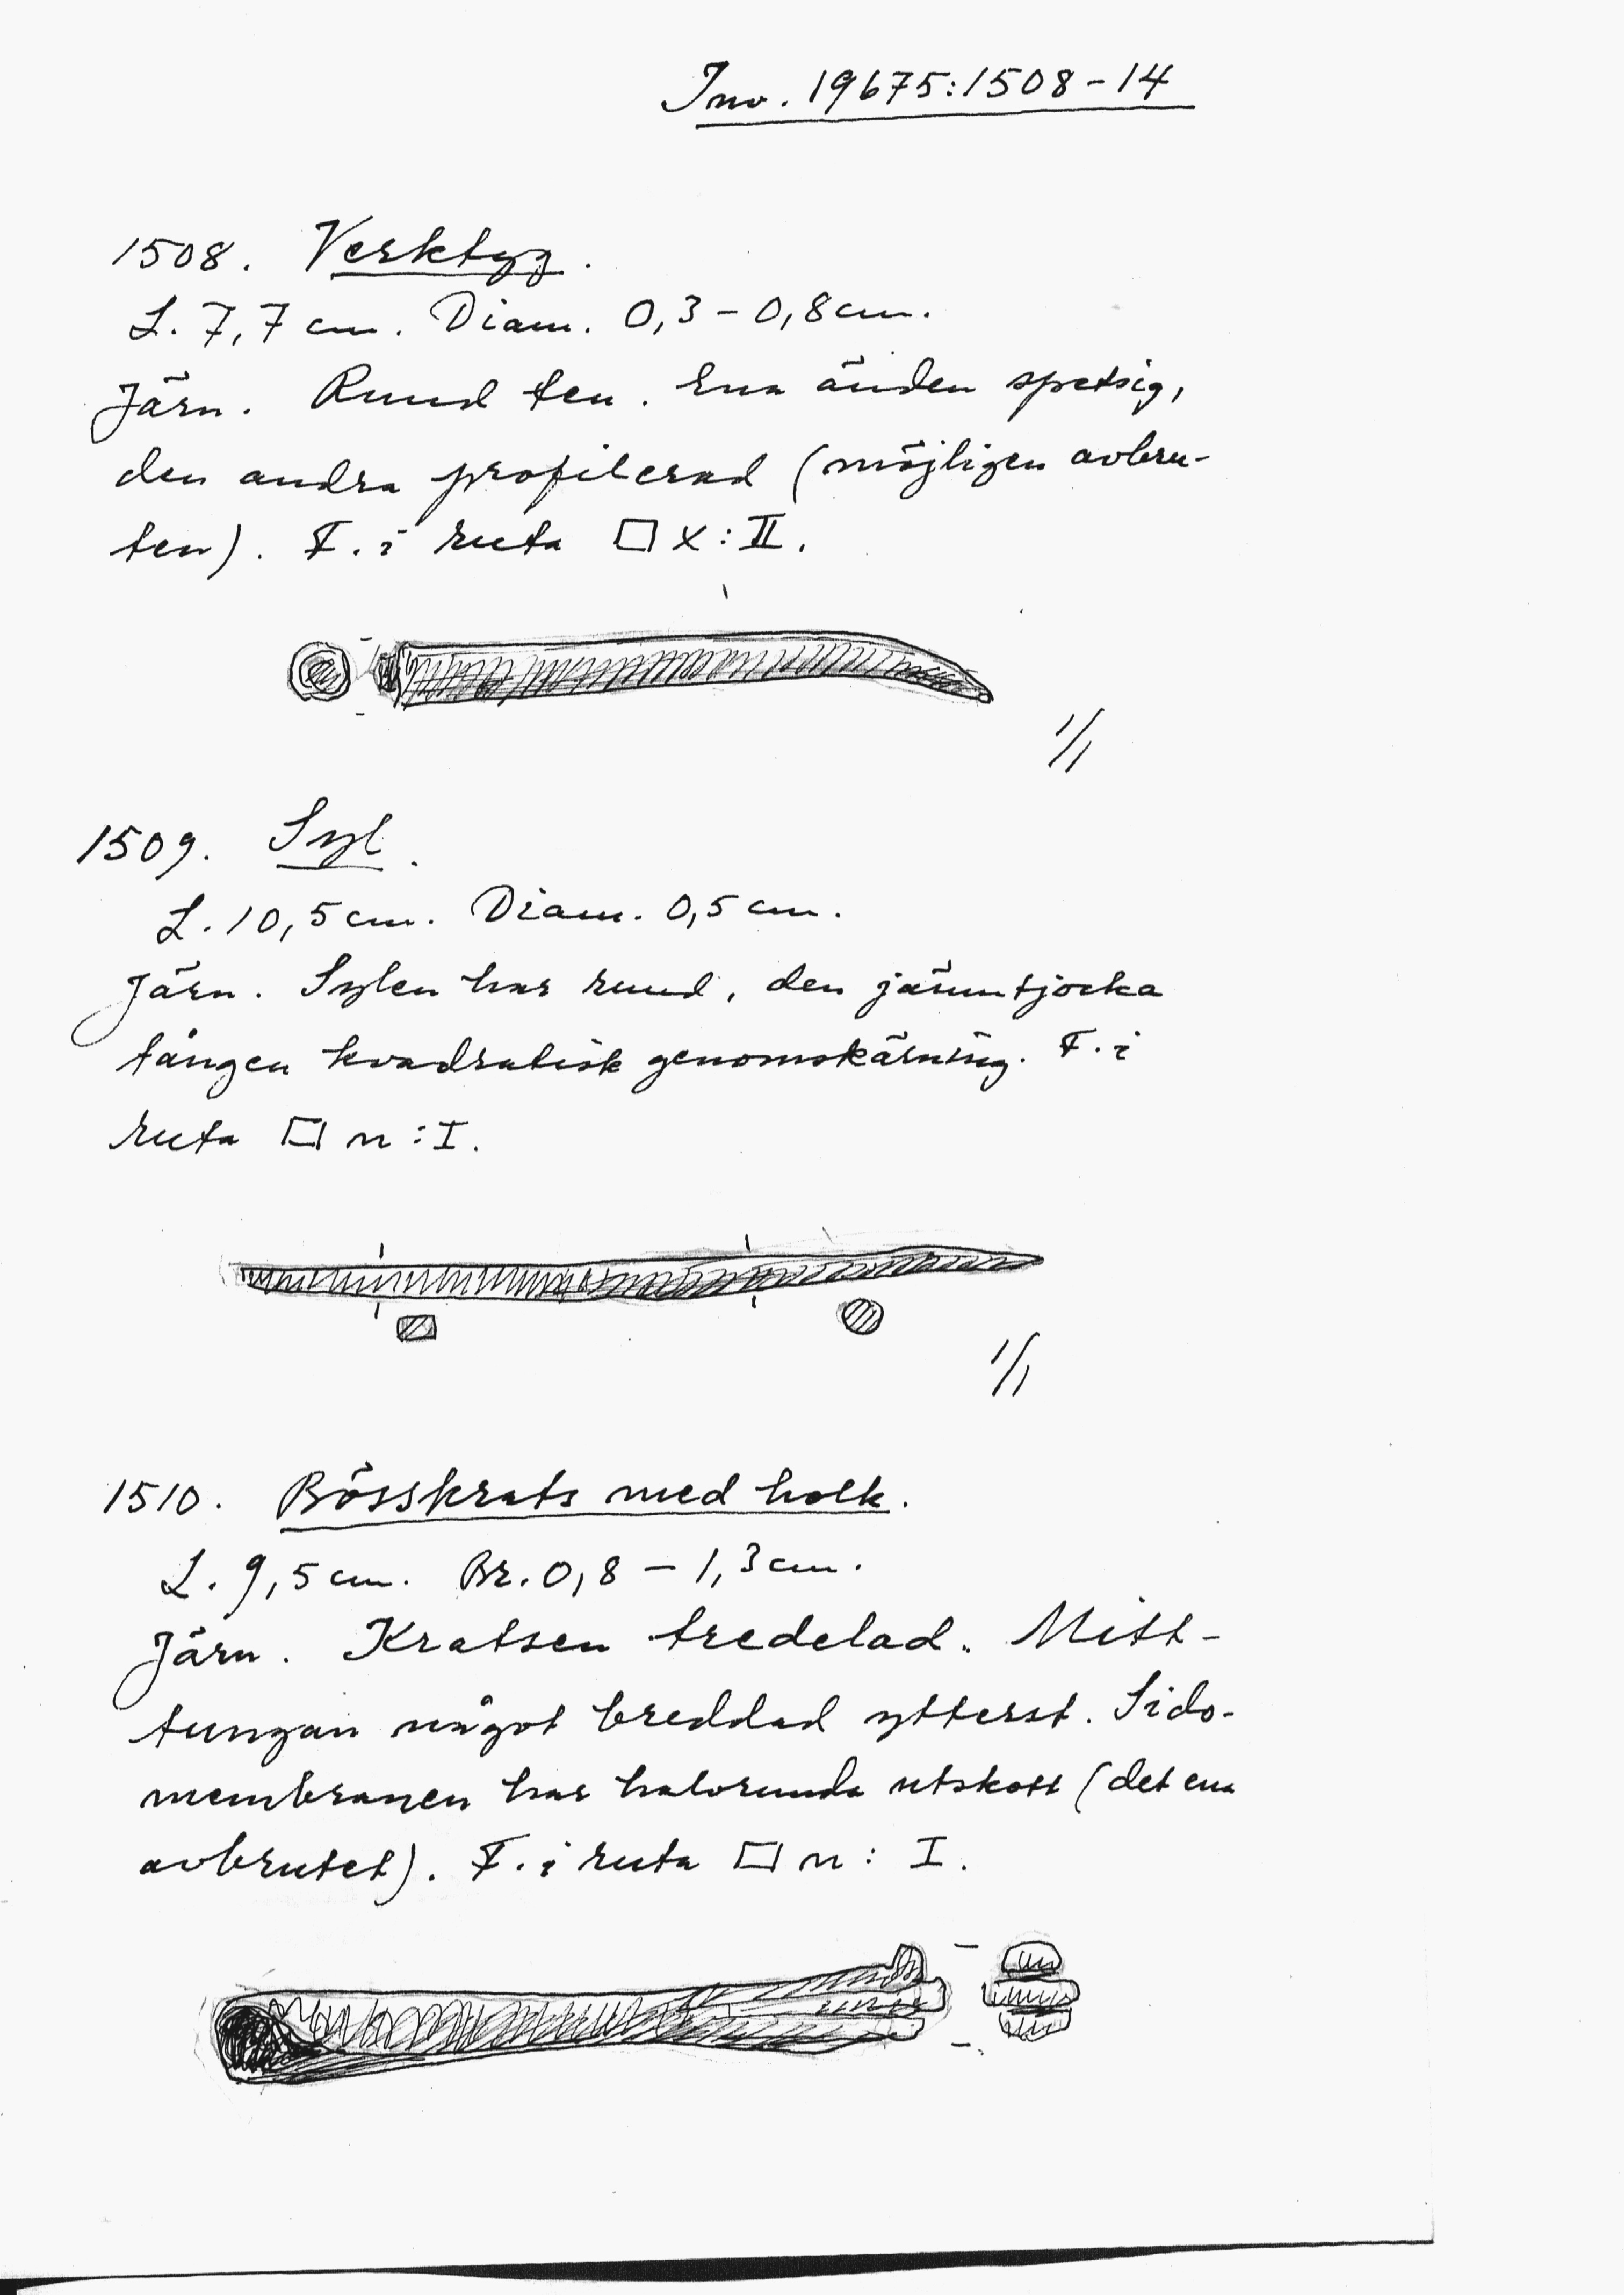 Inv. 19675:1508-14
1508. Verktyg.
L. 7,7 cm. Diam. 0,3 - 0,8 cm.
Järn. Rund ten. Ena änden spetsig,
den andra profilerad (möjligen avbru-
ten). F. i ruta □ x : II.
1/1
1509. Syl.
L. 10,5 cm. Diam. 0,5 cm.
Järn. Sylen har rund, den jämntjocka
tången kvadratisk genomskärning. F. i
ruta □ n : I.
1/1
1510. Bösskrats med holk.
L. 9,5 cm. Br. 0,8 - 1,3 cm.
Järn. Kratsen tredelad. Mitt-
tungan något breddad ytterst. Sido-
membranen har halvrunda utskott (det ena
avbrutet). F. i ruta □ n : I.